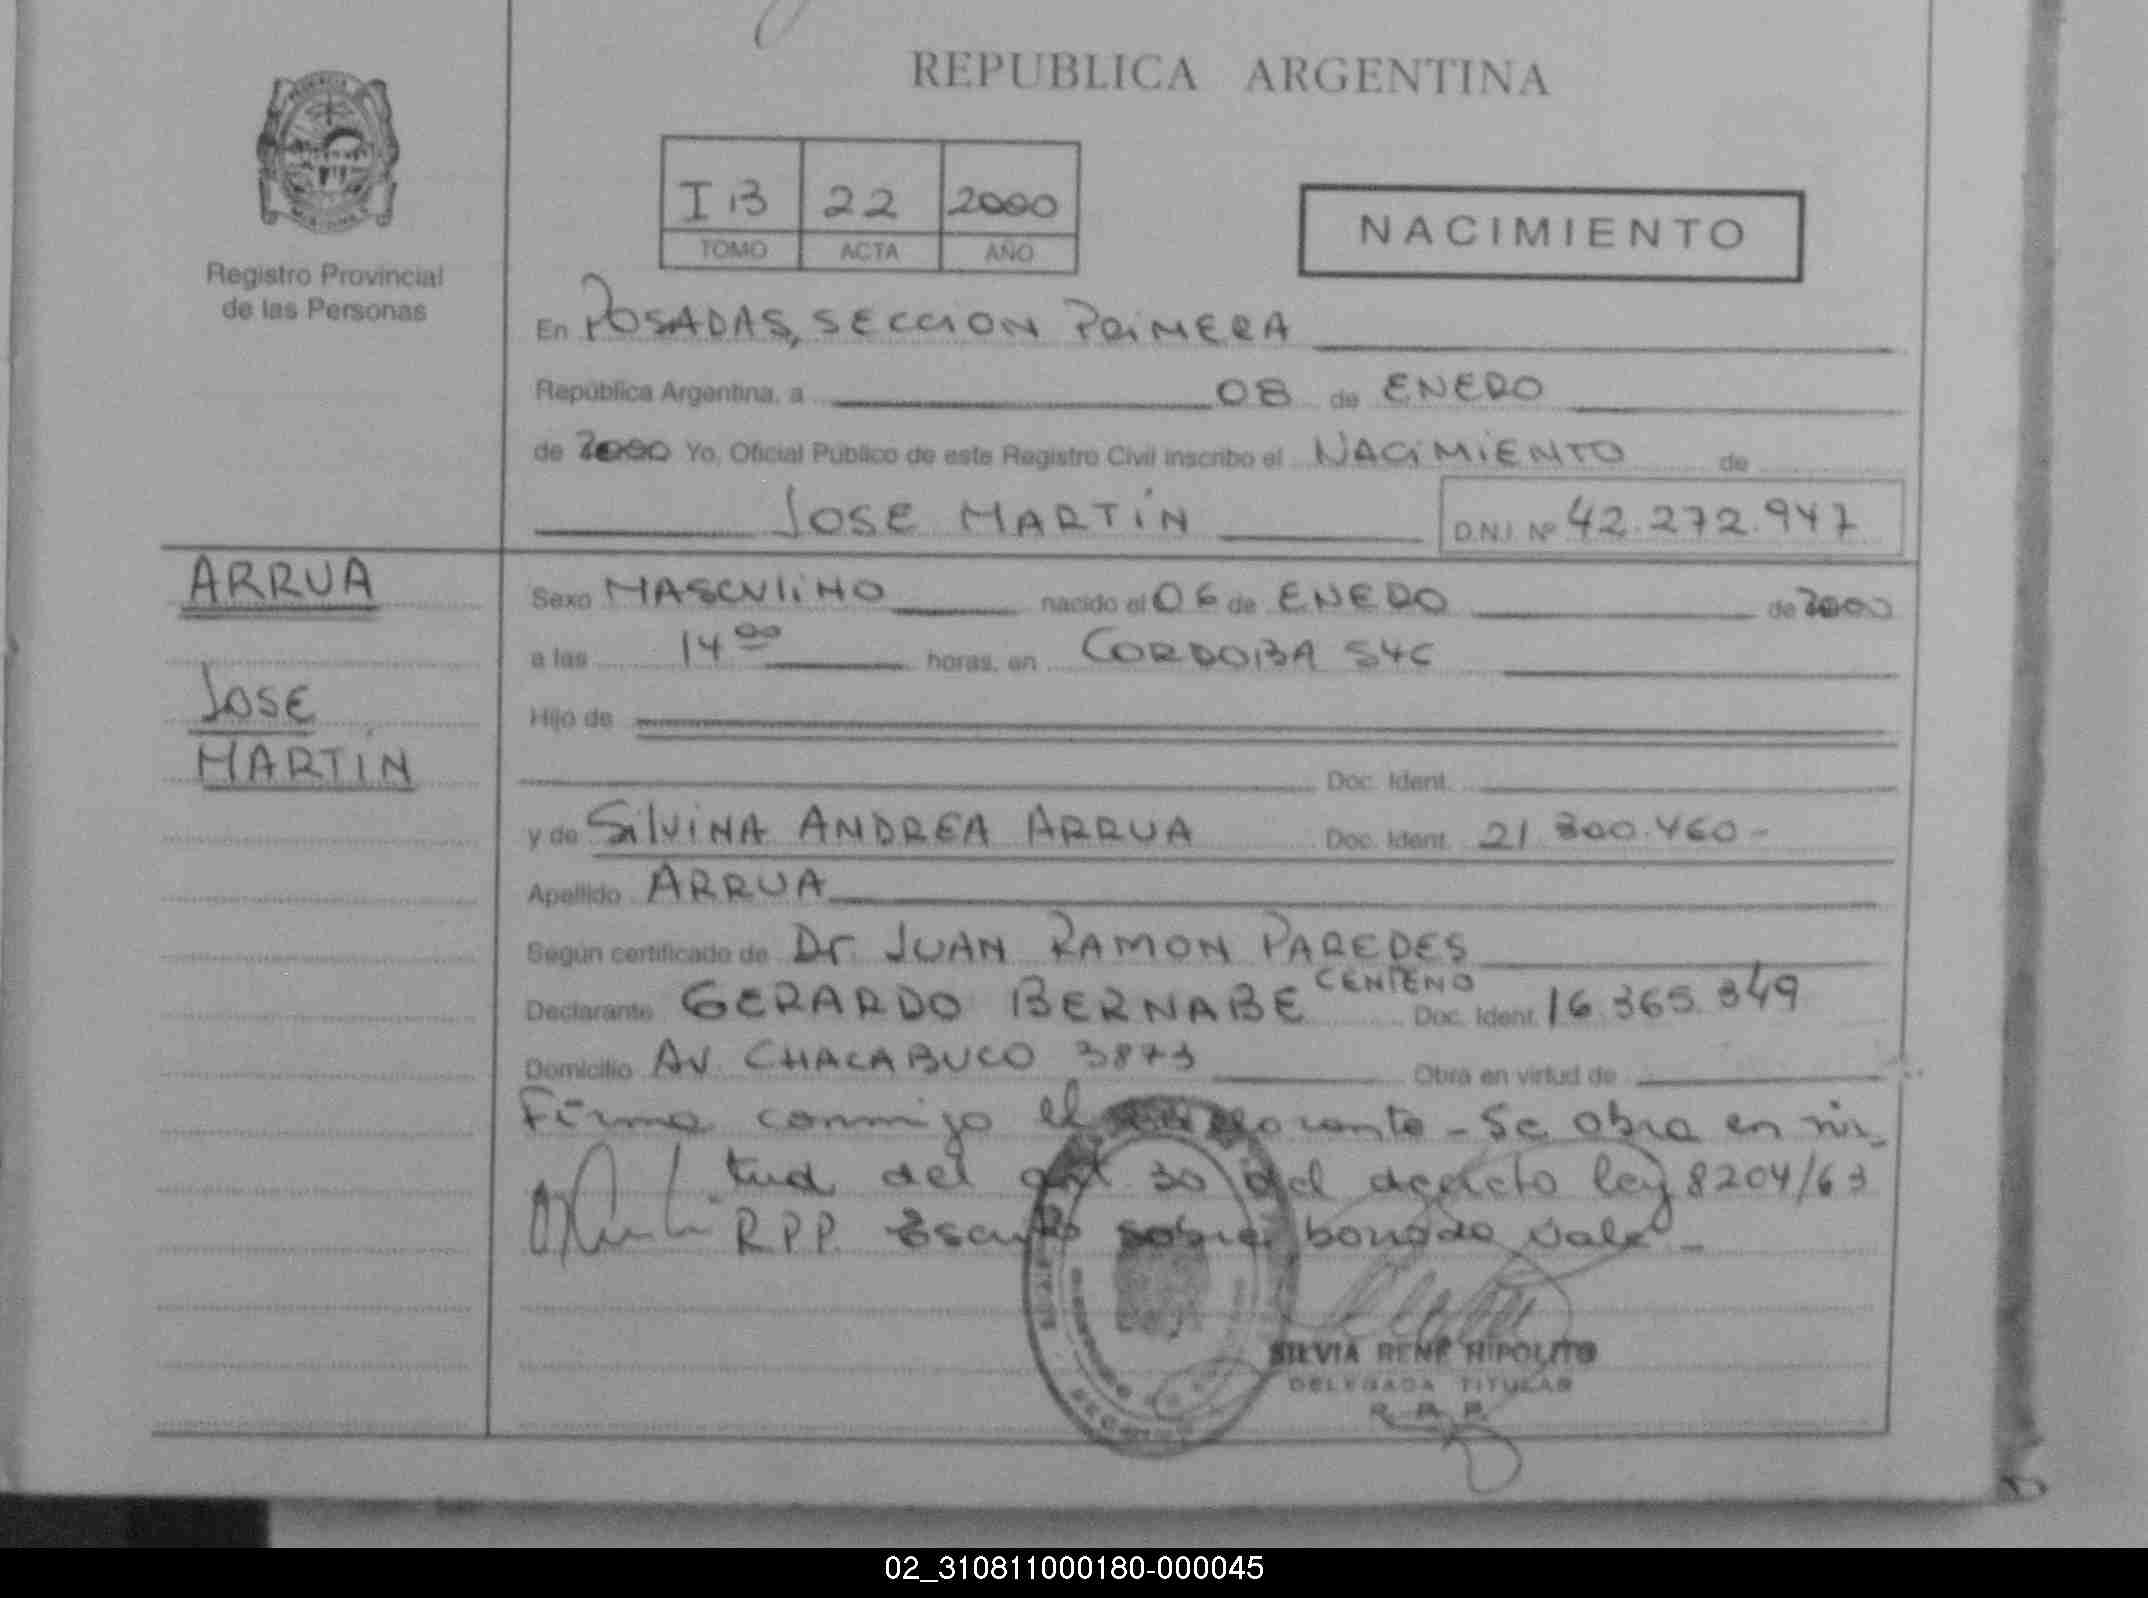 REPUBLICA ARGENTINA
I B 22 2000
TOMO ACTA AÑO
NACIMIENTO
Registro Provincial
de las Personas
En POSADAS, SECCION PRIMERA
República Argentina, a 08 de ENERO
de 2000 Yo, Oficial Público de este Registro Civil inscribo el NACIMIENTO de
JOSE MARTIN D.N.I. Nº 42.272.947
ARRUA
JOSE
MARTIN
Sexo MASCULINO nacido el 06 de ENERO de 2000
a las 14 00 horas, en CORDOBA
Hijo de
Doc. Ident.
y de SILVINA ANDREA ARRUA Doc. Ident. 21 300.460-
Apellido ARRUA
Según certificado de Dr. JUAN RAMON PAREDES
CENTENO
Declarante GERARDO BERNABE Doc. Ident. 16.365.349
Domicilio AV. CHACABUCO 3873 Obra en virtud de
Firma conmigo el - Se obra en vir_
tud del art 30 del decreto ley 8204/63
R.P.P. Escrito sobre borrado vale -
SILVIA RENE HIPOLITO
DELEGADA TITULAR
R. P. P.
02_310811000180-000045